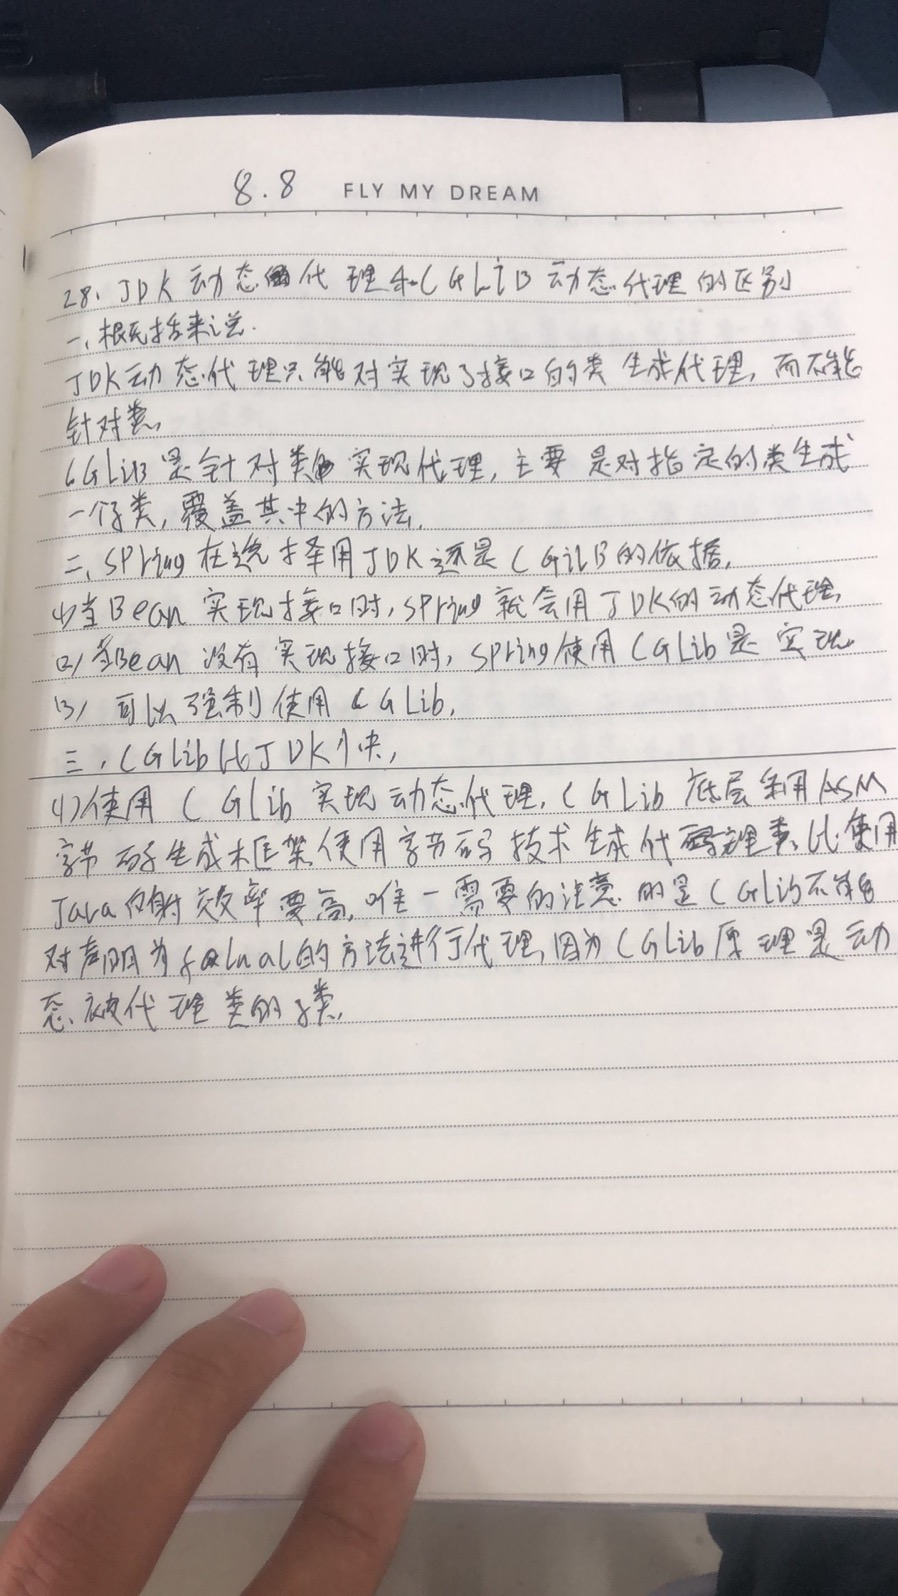 8.8 FLY MY DREAM
28、JDK动态代理和CGLIB动态代理的区别
一、根括来说.
JDK动态代理只能对实现了接口的类生成代理，而不能
针对类，
CGLIB是针对类实现代理，主要是对指定的类生成
一个子类，覆盖其中的方法，
二、Spring在选择用JDK还是CGILB的依据，
(1)当Bean实现接口时，Spring就会用JDK的动态代理，
(2)当Bean没有实现接口时，Spring使用CGLib是实现
(3)可以强制使用CGLib，
三、CGLib比JDK快，
(1)使用CGLib实现动态代理，CGLib底层采用ASM
字节码生成框架，使用字节码技术生成代理类，比使用
Java射效率要高，唯一需要的注意的是CGLib不能
对声明为final的方法进行代理，因为CGLib原理是动
态被代理类的子类，